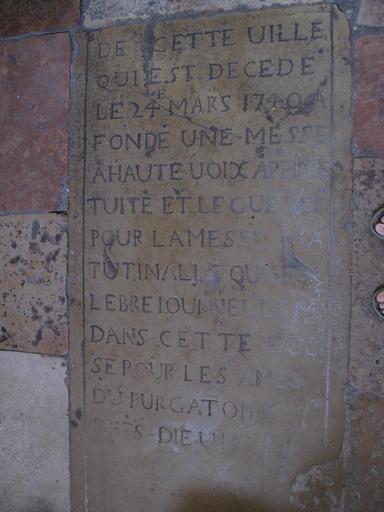 DE CETTE UILLE
QUI EST DECEDE
LE 24E MARS 1740 A
FONDÉ UNE MESSE
A HAUTE UOIX
TUITÉ ET LE
POUR LA MESSE MA
TUTINALLE QUI SE
LEBRE IOURNELLEM
DANS CETTE
SE POUR LES AMES
DU PURGATOI
DIEU